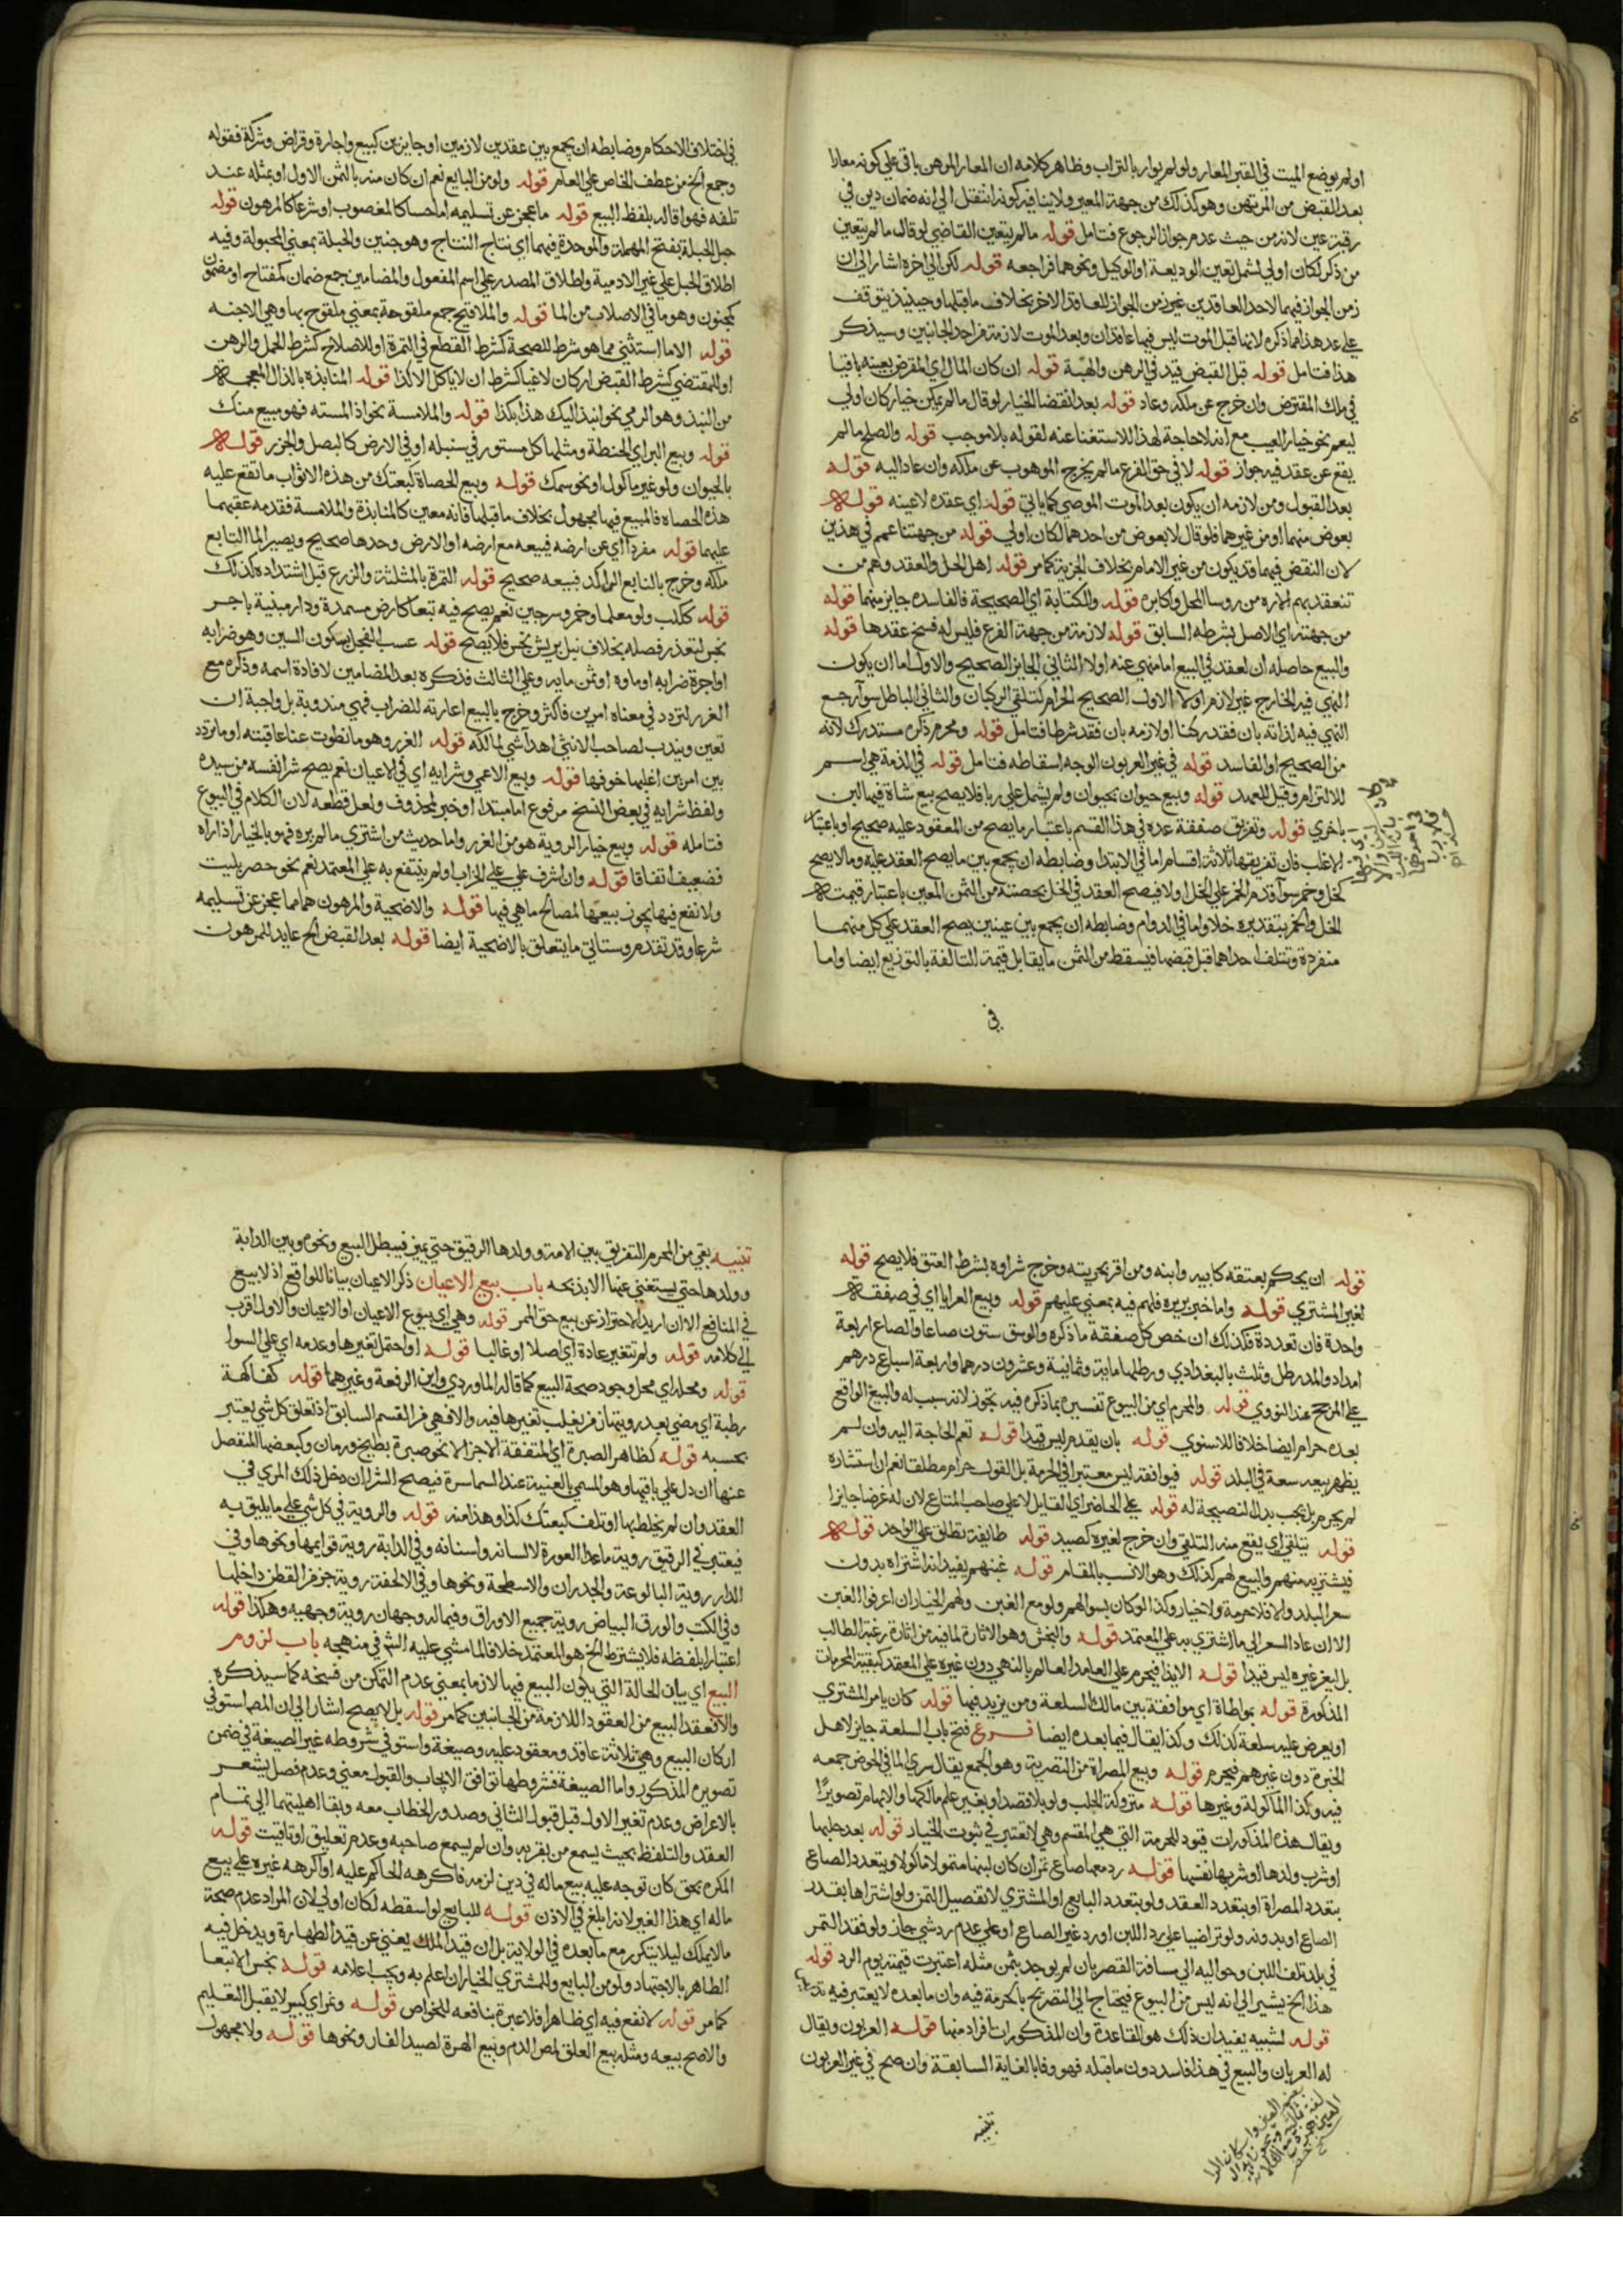 او لم يوضع الميت في القبر المعار ولو لم يوار بالتراب وظاهر كلامه ان المعار للرهن باق علي كونه معارا
بعد القبض من المرتهن وهو كذلك من جهة المعير ولا ينافيه كونه انتقل الي انه ضمان دين في
رقبة عين لانه من حيث عدم جواز الرجوع فتامل قوله ما لم يتعين القاضي لو قال ما لم يتعين
من ذكر لكان اولي ليشمل تعين الوديعة او الوكيل ونحوهما فراجعه قوله لكن الي اخره اشار الي ان
زمن الجواز فيهما لاحد العاقدين غير زمن الجواز للعاقد الاخر بخلاف ما قبلها وحينئذ يتوقف
علي عد هذا مما ذكره لانها قبل الموت ليس فيها عاقدان وبعد الموت لازمة من احد الجانبين وسيذكر
هذا فتامل قوله قبل القبض قيد في الرهن والهبة قوله ان كان المال اي المقرض بعينه باقيا
في ملك المقترض وان خرج عن ملكه وعاد قوله بعد انقضا الخيار لو قال ما لم يكن خيار كان اولي
ليعم نحو خيار العيب مع انه لا حاجة لهذا للاستغنا عنه لقوله بلا موجب قوله والصلح ما لم
يقع عن عقد فيه جواز قوله لا في حق الفرع ما لم يخرج الموهوب عن ملكه وان عاد اليه قوله
بعد القبول ومن لازمه ان يكون بعد الموت الموصي كما ياتي قوله اي عقده لا عينه قوله
بعوض منهما او من غيرهما فلو قال لا بعوض من احدهما لكان اولي قوله من جهتنا عمم في هذين
لان النقض فيهما قد يكون من غير الامام بخلاف الجزية كما مر قوله اهل الحل والعقد وهم من
تنعقد بهم الامارة من روسا المحل واكابره قوله والكتابة اي الصحيحة فالفاسدة جايز منهما قوله
من جهته اي الاصل بشرطه السابق قوله لازمة من جهة الفرع فليس له فسخ عقدها قوله
والبيع حاصله ان لعقد في البيع اما منهي عنه او لا الثاني الجايز الصحيح والاول اما ان يكون
النهي فيه لخارج غير لازم او لا الاول الصحيح الحرام كتلقي الركبان والثاني الباطل سوا رجع
النهي فيه لذاته بان فقد ركنا او لازمه بان فقد شرطا فتامل قوله ومحرم ذكره مستدرك لانه
من الصحيح او الفاسد قوله في غير العربون الوجه اسقاطه فتامل قوله في الذمة هي اسم
للالتزام وقيل للعهد قوله وبيع حيوان بحيوان ولم يشمل علي ربا فلا يصح بيع شاة فيها لبن
باخري قوله وتفريق صفقة عده في هذا القسم باعتبار ما يصح من المعقود عليه صحيح او باعتبار
الاغلب فان تفريقها ثلاثة اقسام اما في الابتدا وضابطه ان يجمع بين ما يصح العقد عليه وما لا يصح
كخل وخمر سوا قدم الخمر علي الخل او لا فيصح العقد في الخل بحصته من الثمن المعين باعتبار قيمته
الخل والخمر بتقديره خلا واما في الدوام وضابطه ان يجمع بين عينين يصح العقد علي كل منهما
منفردة وتتلف احداهما قبل قبضها فيسقط من الثمن ما يقابل قيمة التالفة بالتوزيع ايضا واما
في
في اختلاف الاحكام وضابطه ان يجمع بين عقدين لازمين او جايزين كبيع واجارة وقراض وشركة فقوله
وجمع الخ من عطف الخاص علي العام قوله ولو من البايع نعم ان كان منه بالثمن الاول او بمثله عند
تلفه فهو اقالة بلفظ البيع قوله ما عجز عن تسليمه اما حسا كالمغصوب او شرعا كالمرهون قوله
حبل الحبلة بفتح المهملة والموحدة فيهما اي نتاج النتاج وهو جنين والحبلة بمعني المحبولة وفيه
اطلاق الحبل علي غير الادمية واطلاق المصدر علي اسم المفعول والمضامين جمع ضمان كمفتاح او مضمون
كمجنون وهو ما في الاصلاب من الما قوله والملاقيح جمع ملقوحة بمعني ملقوح بها وهي الاجنه
قوله الا ما استثني مما هو شرط للصحة كشرط القطع في الثمرة او للاصلاح كشرط الحمل والرهن
او للمقتضي كشرط القبض او كان لاغيا كشرط ان لا ياكل الا كذا قوله المنابذه بالذال المعجمه
من النبذ وهو الرمي نحو انبذ اليك هذا بكذا قوله والملامسة نحو اذا لمسته فهو مبيع منك
قوله وبيع البر اي الحنطة ومثلها كل مستور في سنبله او في الارض كالبصل والجزر قوله
بالحيوان ولو غير ماكول او نحو سمك قوله وبيع الحصاة كبعتك من هذه الاثواب ما تقع عليه
هذه الحصاه فالمبيع فيها مجهول بخلاف ما قبلها فانه معين كالمنابذة والملامسة فقدمه عقبهما
عليهما قوله مفردا اي عن ارضه فبيعه مع ارضه او الارض وحدها صحيح ويصير الما التابع
ملكه وخرج بالنابع الراكد فبيعه صحيح قوله الثمرة بالمثلثة والزرع قبل اشتداده كذلك
قوله ككلب ولو معلما وخمر وسرجين نعم يصح فيه تبعا كارض مسمدة ودار مبنية باجر
نجس لتعذر فصله بخلاف نبل بريش نجس فلا يصح قوله عسب الفحل بسكون السين وهو ضرابه
او اجرة ضرابه او ماوه او ثمن مايه وعلي الثالث فذكره بعد المضامين لافادة اسمه وذكره مع
الغرر لتردد في معناه امرين فاكثر وخرج بالبيع اعارته للضراب فهي مندوبة بل واجبة ان
تعين ويندب لصاحب الانثي اهدا شي لمالكه قوله الغرر وهو ما انطوت عنا عاقبته او ما تردد
بين امرين اغلبهما خوفهما قوله وبيع الاعمي وشرايه اي في الاعيان نعم يصح شرا نفسه من سيده
ولفظ شرايه في بعض النسخ مرفوع اما مبتدا او خبر لمحذوف ولعل قطعه لان الكلام في البيوع
فتامله قوله وبيع خيار الروية هو من الغرر واما حديث من اشتري ما لم يره فهو بالخيار اذا راه
فضعيف اتفاقا قوله وان اشرف علي علي الخراب او لم ينتفع به علي المعتمد نعم نحو حصر بليت
ولا نفع فيها يجوز بيعها لمصالح ما هي فيها قوله والاضحية والمرهون هما مما عجز عن تسليمه
شرعا وقد تقدم وسياتي ما يتعلق بالاضحية ايضا قوله بعد القبض الخ عايد للمرهون
قوله ان يحكم بعتقه كابيه وابنه ومن اقر بحريته وخرج شراوه بشرط العتق فلا يصح قوله
لغير المشتري قوله واما خبر بريره فلهم فيه بمعني عليهم قوله وبيع العرايا اي في صفقة
واحدة فان تعددة فكذلك ان خص كل صفقة ما ذكره والوسق ستون صاعا والصاع اربعة
امداد والمد رطل وثلث بالبغدادي ورطلها ماية وثمانية وعشرون درهما واربعة اسباع درهم
علي المرجح عند النووي قوله والمحرم اي من البيوع تفسيره بما ذكره فيه تجوز لانه سبب له والبيع الواقع
بعده حرام ايضا خلافا للاسنوي قوله بان يقدم ليس قيدا قوله تعم الحاجة اليه وان لم
يظهر ببيعه سعة في البلد قوله فيوافقه ليس معتبرا في الحرمة بل القول حرام مطلقا نعم ان استشاره
لم يحرم بل يجب بدل النصيحة له قوله علي الحاضر اي القايل لا علي صاحب المتاع لان له غرضا جايزا
قوله يتلقي اي يقع منه التلقي وان خرج لغيره كصيد قوله طايفة تطلق علي الواحد قوله
فيشتريه منهم والبيع لهم كذلك وهو الانسب بالمقام قوله غبنهم يفيد انه اشتراه بدون
سعر البلد والا فلا حرمة ولا خيار وكذا لو كان بسوالهم ولو مع الغبن ولهم الخيار ان اعرفوا الغبن
الا ان عاد السعر الي ما اشتري به علي المعتمد قوله والنجش وهو الاثارة لما فيه من اثارة رغبة الطالب
بل يغر غيره ليس قيدا قوله الايذا فيحرم علي العامد العالم بالنهي دون غيره علي المعتمد كبقية المحرمات
المذكورة قوله بمواطاة اي موافقة بين مالك السلعة ومن يزيد فيها قوله كان يامر المشتري
او يعرض عليه سلعة كذلك وكذا يقال فيما بعده ايضا فرع فتح باب السلعة جايز لاهل
الخبرة دون غيرهم فيحرم قوله وبيع المصراة من التصرية وهو الجمع يقال صري الما في الحوض جمعه
فيه وكذا الماكولة وغيرها قوله متروكة الحلب ولو بلا قصد او بغير علم مالكها والايهام تصويرا
ويقال هذه المذكورات قيود للحرمة التي هي المقسم وهي لا تعتبر في ثبوت الخيار قوله بعد حلبها
او شرب ولدها او شربها نفسها قوله رد معها صاع تمر ان كان لبنها متمولا ماكولا ويتعدد الصاع
بتعدد المصراة او بتعدد العقد ولو بتعدد البايع او المشتري لا تفصيل الثمن ولو اشتراها بقدر
الصاع او بدونه ولو تراضيا علي رد اللبن او رد غير الصاع او علي عدم رد شي جاز ولو فقد التمر
في بلد تلف اللبن وحواليه الي مسافة القصر بان لم يوجد بثمن مثله اعتبرت قيمته يوم الرد قوله
هذا الخ يشير الي انه ليس من البيوع فيحتاج الي التصريح بالحرمة فيه وان ما بعده لا يعتبر فيه
قوله لشبيه يفيد ان ذلك هو القاعدة وان المذكورات افراد منها قوله العربون ويقال
له العربان والبيع في هذا فاسد دون ما قبله فهو وفا بالغاية السابقة وان صح في غير العربون
تنبيه
تنبيه بقي من المحرم التفريق بين الامة وولدها الرقيق حتي يميز فيبطل البيع ونحوه وبين الدابة
وولدها حتي يستغني عنها الا بذبحه باب بيع الاعيان ذكر الاعيان بيانا للواقع اذ لا بيع
في المنافع الا ان اريد الاحتراز عن بيع حق الممر قوله وهي اي بيوع الاعيان او الاعيان والاول اقرب
الي كلامه قوله ولم تتغير عادة اي اصلا او غالبا قوله او احتمل تغيرها وعدمه اي علي السوا
قوله ومحله اي محل وجود صحة البيع كما قاله الماوردي وابن الرفعة وغيرهما قوله كفاكهة
رطبة اي مضي بعد رويتها زمن يغلب تغيرها فيه والا فهي من القسم السابق اذ تعلق كل شي يعتبر
بحسبه قوله كظاهر الصبرة اي المتفقة الاجزا لا نحو صبرة بطيخ ورمان وكبعضها المنفصل
عنها ان دل علي باقيها وهو المسمي بالعنية عند السماسرة فيصح الشرا ان دخل ذلك المري في
العقد وان لم يخلطها او تلف كبعتك كذا وهذا منه قوله والروية في كل شي علي ما يليق به
فيعتبر في الرقيق روية ما عدا العورة لا لسانه واسنانه وفي الدابة روية قوايمها ونحوها وفي
الدار روية البالوعة والجدران والاسطحة ونحوها وفي الالحفة روية جزء من القطن داخلها
وفي الكتب والورق البياض روية جميع الاوراق وفيما له وجهان روية وجهيه وهكذا قوله
اعتبارا بلفظه فلا يشترط الخ هو المعتمد خلافا لما مشي عليه الشم في منهجه باب لزوم
البيع اي بيان الحالة التي يكون البيع فيها لازما بمعني عدم التمكن من فسخه كما سيذكره
والا فعقد البيع من العقود اللازمة من الجانبين كما مر قوله بل لا يصح اشار الي ان المص استوفي
اركان البيع وهي ثلاثة عاقد ومعقود عليه وصيغة واستوفي شروطه غير الصيغة في ضمن
تصويره المذكور واما الصيغة فشروطها توافق الايجاب والقبول معني وعدم فصل يشعر
بالاعراض وعدم تغير الاول قبل قبول الثاني وصدور الخطاب معه وبقا اهليتهما الي تمام
العقد والتلفظ بحيث يسمع من بقربه وان لم يسمع صاحبه وعدم تعليق او تاقيت قوله
المكره بحق كان توجه عليه بيع ماله في دين لزمه فاكرهه الحاكم عليه او اكره غيره علي بيع
ماله اي هذا الغير لانه ابلغ في الاذن قوله للبايع لو اسقطه لكان اولي لان المراد عدم صحة
ما لا يملك ليلا يتكرر مع ما بعده في الولاية بل ان قيد الملك يعني عن قيد الطهارة ويدخل فيه
الطاهر بالاجتهاد ولو من البايع وللمشتري الخيار ان اعلم به ويجب اعلامه قوله نجس الا تبعا
كما مر قوله لا نفع فيه اي ظاهرا فلا عبرة بنافعه للخواص قوله ونمر اي كبير لا يقبل التعليم
والا صح بيعه ومثله بيع العلق لمص الدم وبيع الهرة لصيد الفار ونحوها قوله ولا مجهول